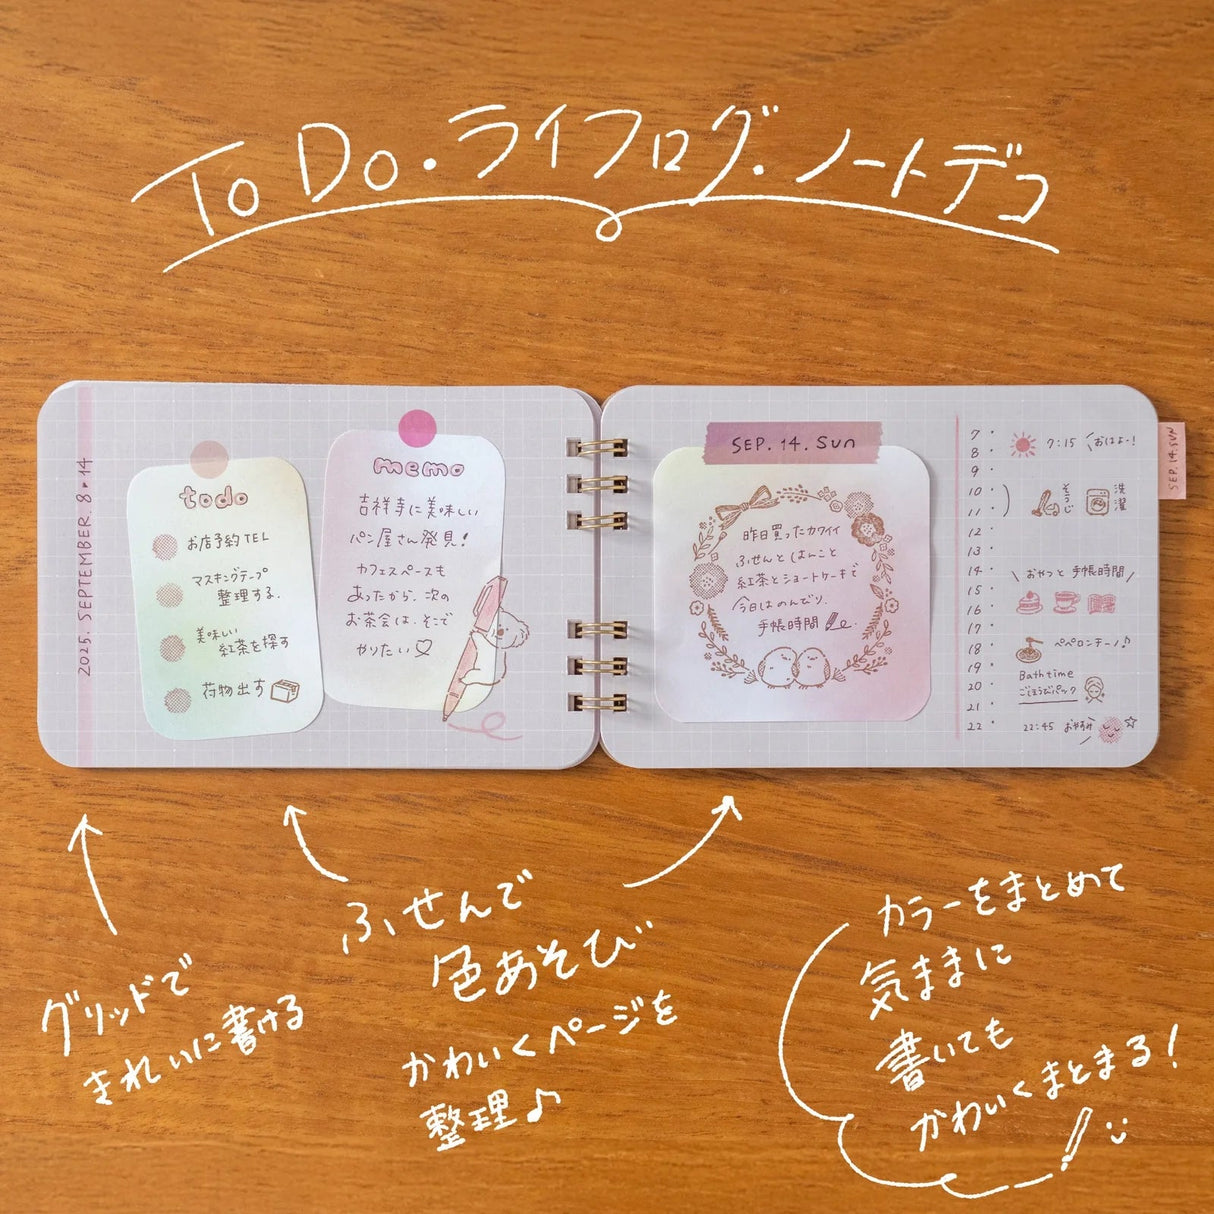 To Do・ライフログ・ノートデコ
2025. SEPTEMBER. 8▸14
todo
お店予約TEL
マスキングテープ
整理する.
美味しい
紅茶を探す
荷物出す
memo
吉祥寺に美味しい
パン屋さん発見!
カフェスペースも
あったから、次の
お茶会は、そこで
やりたい♡
SEP. 14. Sun
昨日買ったカワイイ
ふせんとはんこと
紅茶とショートケーキで
今日はのんびり、
手帳時間
7
8
9
10
11
12
13
14
15
16
17
18
19
20
21
22
7:15 おはよー!
そうじ
洗濯
\ おやつと 手帳時間 /
ペペロンチーノ♪
Bath time
ごほうびパック
22:45 おやすみ
SEP. 14. SUN
グリッドで
きれいに書ける
ふせんで
色あそび
かわいくページを
整理♪
カラーをまとめて
気ままに
書いても
かわいくまとまる!